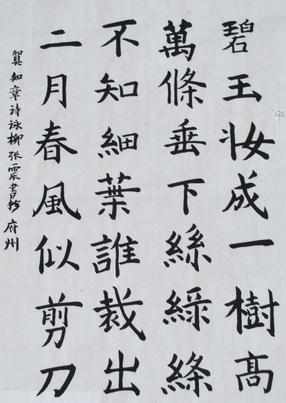 碧玉妆成一樹髙
萬條垂下絲綠絛
不知細葉誰裁出
二月春風似剪刀
賀知章詩詠柳張震書於府州